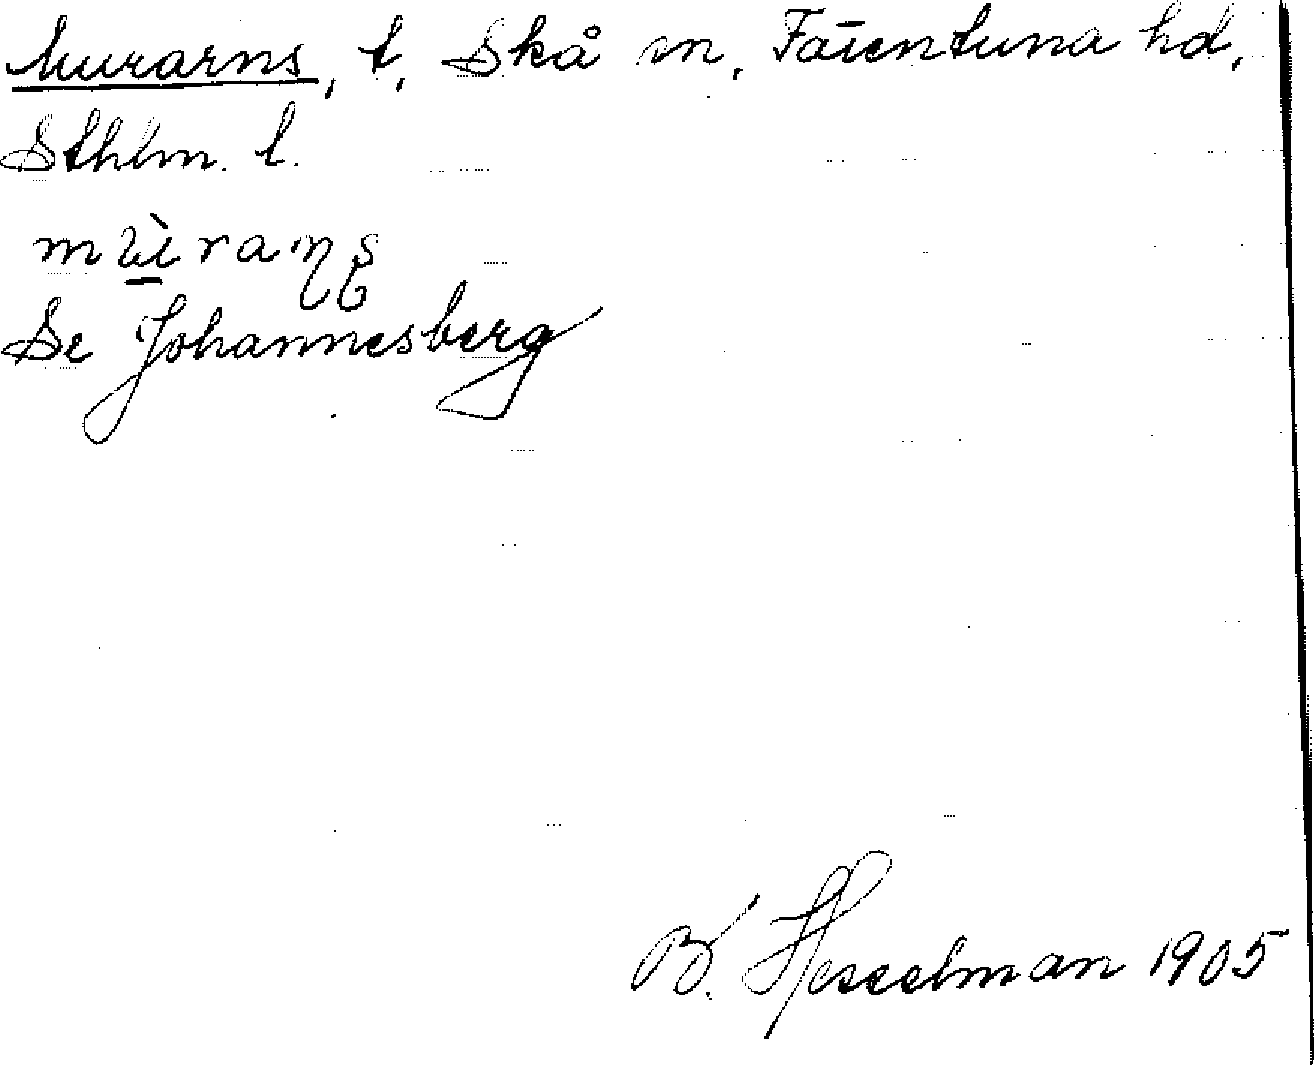 Murarns, t, Skå sn, Färentuna hd,
Sthlm. l.
mù̱raɳʂ
Se Johannesberg
B. Hesselman 1905